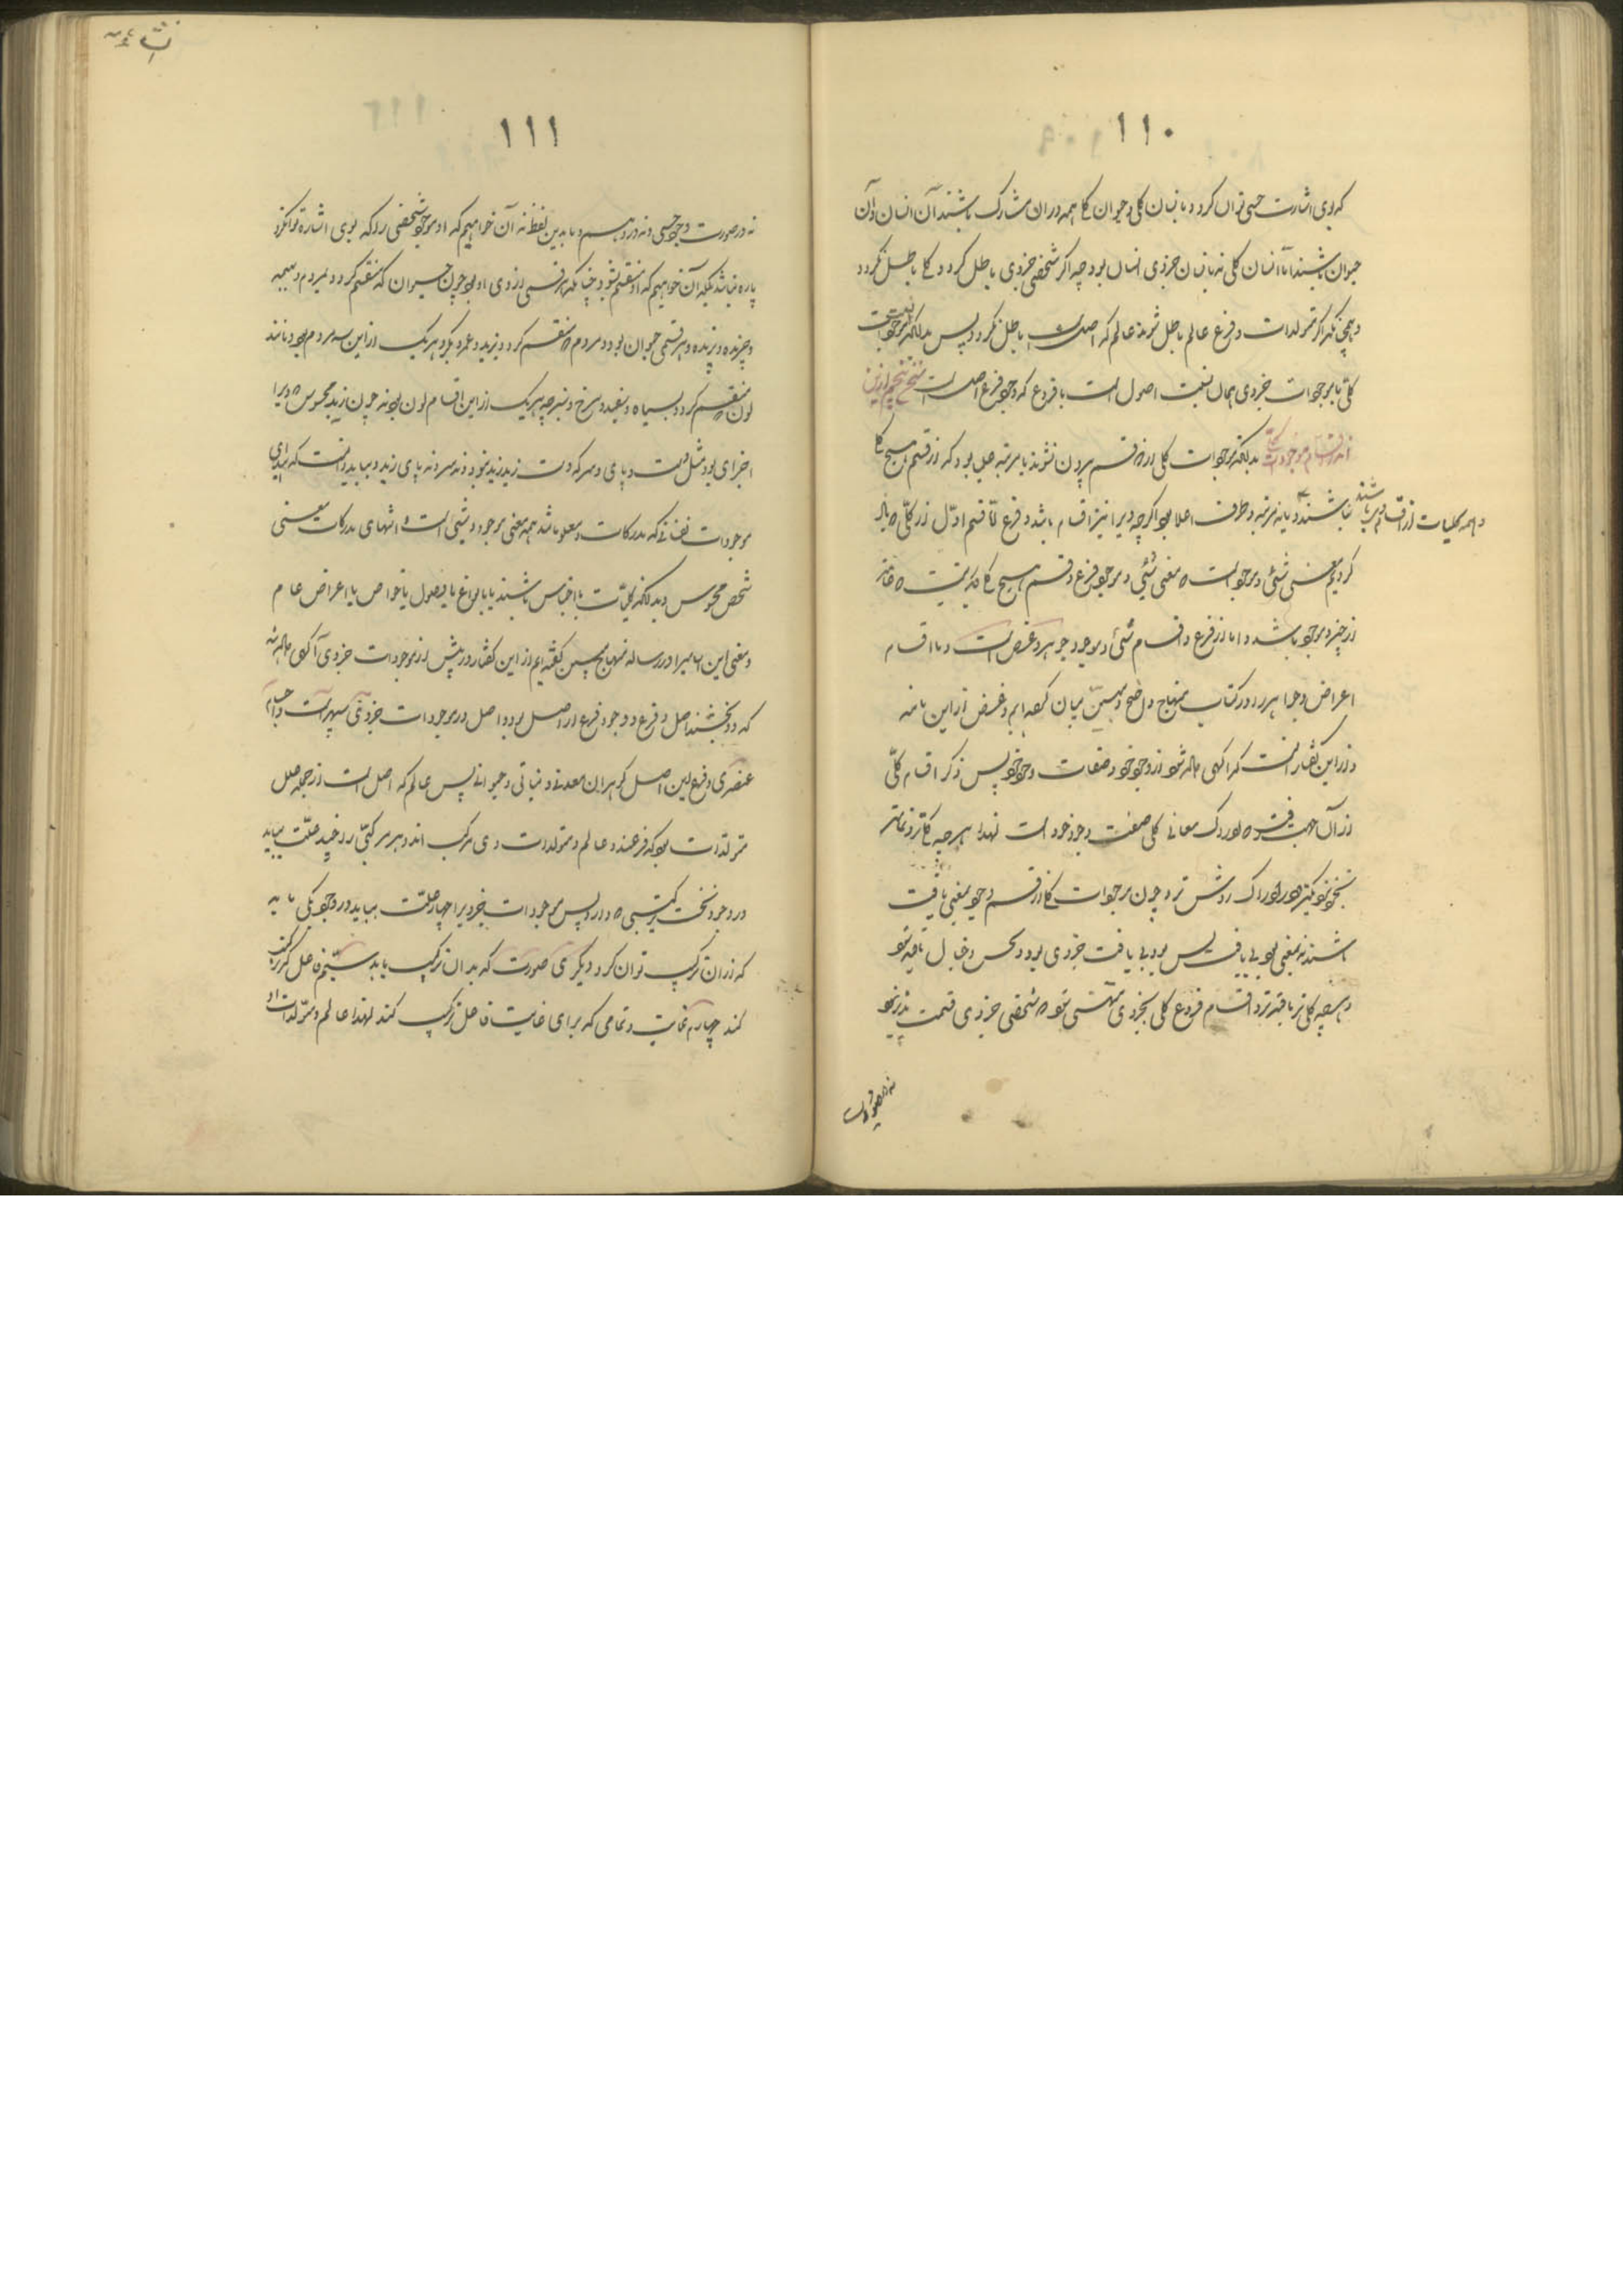 ۱۱۰
که بوی اشارت حسی توان کرد و نه انسان کلی و حیوان کلی همه در آن مشارک باشند آن انسان و آن
حیوان باشند اما انسان کلی نه بانسان جزوی انسان بود چه اگر شخصی جزوی باطل گردد کلی باطل نگردد
و همچنانکه اگر متولدات و فرع عالم باطل شوند عالم که اصلست باطل نگردد پس بدانکه نسبت موجودات
کلی با موجودات جزوی همان نسبت اصول است با فروع که وجود فرع از اصل است
اندر اقسام موجودات کلی بدانکه موجودات کلی از دو قسم بیرون نشوند یا مرتبه اصل بود که از قسم هیچ کلی
نباشند و این مرتبه و طرف اعلا بود اگرچه ویرا نیز اقسام باشد و فرع اما قسم اول از کلی که یاد
و همه کلیات از اقسام وی باشند
کردیم معنی شیء و موجود است که معنی شیء و موجود فرع و قسم هیچ کلی دیگر نیست
از چیز و موجود باشد و اما از فرع و اقسام شیء و موجود جوهر و عرض است و ما اقسام
اعراض و جواهر را در کتاب منهاج واضح و مبین بیان کرده ایم و غرض از این نامه
و از این گفتار آنست که آگهی داده شود از وجود خود و صفات وجود خود پس ذکر اقسام کلی
از آن جهت رفت که ادراک معانی کلی صفت وجود خود است لهذا هر چه کلی تر و تمامتر
بخود نزدیکتر و در ادراک روشن تر و چون موجودات کلی از قسم وجود بمعنی یافت
باشند نه بمعنی بود بی یافت پس بود بی یافت جزوی بود و بحس و خیال یافته شود
و هر چه کلی تر یافته تر و اقسام فروع کلی بجزوی منتهی شود که شخصی جزوی قسمت پذیر نبود
نه در صورت
۱۱۱
نه در صورت وجود حسی و نه در وهم و ما بدین لفظ نه آن خواهیم که او موجود شخصی را که بوی اشاره توان کرد
پاره نباشد بلکه آن خواهیم که او منقسم نشود چنانکه هر قسمی از وی او بود چون حیوان که منقسم گردد بمردم و بهیمه
و چرنده و پرنده و هر قسمی حیوان بود و مردم که منقسم گردد بزید و عمرو و بکر و هر یک از این سه مردم بود و مانند
لون که منقسم گردد بسیاه و سفید و سرخ و سبز چه هر یک از این اقسام لون بود نه چون زید محسوس که ویرا
اجزای بود مثل دست و پای و سر که دست زید زید نبود و نه سر و نه پای زید و بباید دانست که
موجودات نفسانی که مدرکات و معلوماتند همه معنی موجود و شیء است و انتهای مدرکات معنی
شخص محسوس و بدانکه کلیات یا اجناس باشند یا انواع یا فصول یا خواص یا اعراض عام
و معنی این اسامی را در رساله منهاج مبین گفته ایم از این گفتار در پیش از موجودات جزوی آگهی داده شد
که دو بخشند اصل و فرع و وجود فرع از اصل بود و اصل در موجودات جزوی سپهر است و اجسام
عنصری و فرع این اصل گوهران معدنی و نباتی و حیوانی پس عالم که اصل است از جمله علل
متولدات بود که فرعند و عالم و متولدات وی مرکب اند و هر مرکبی را چند علت بباید
در وجود نخست ترکیبی که دارد پس موجودات جزویرا چهار علت بباید در وجود یکی مایه
که از آن ترکیب توان کرد و دیگری صورت که بدان ترکیب یابد سیم فاعل که ترکیب
کند چهارم غایت و تمامی که برای غایت فاعل ترکیب کند لهذا عالم و متولدات او